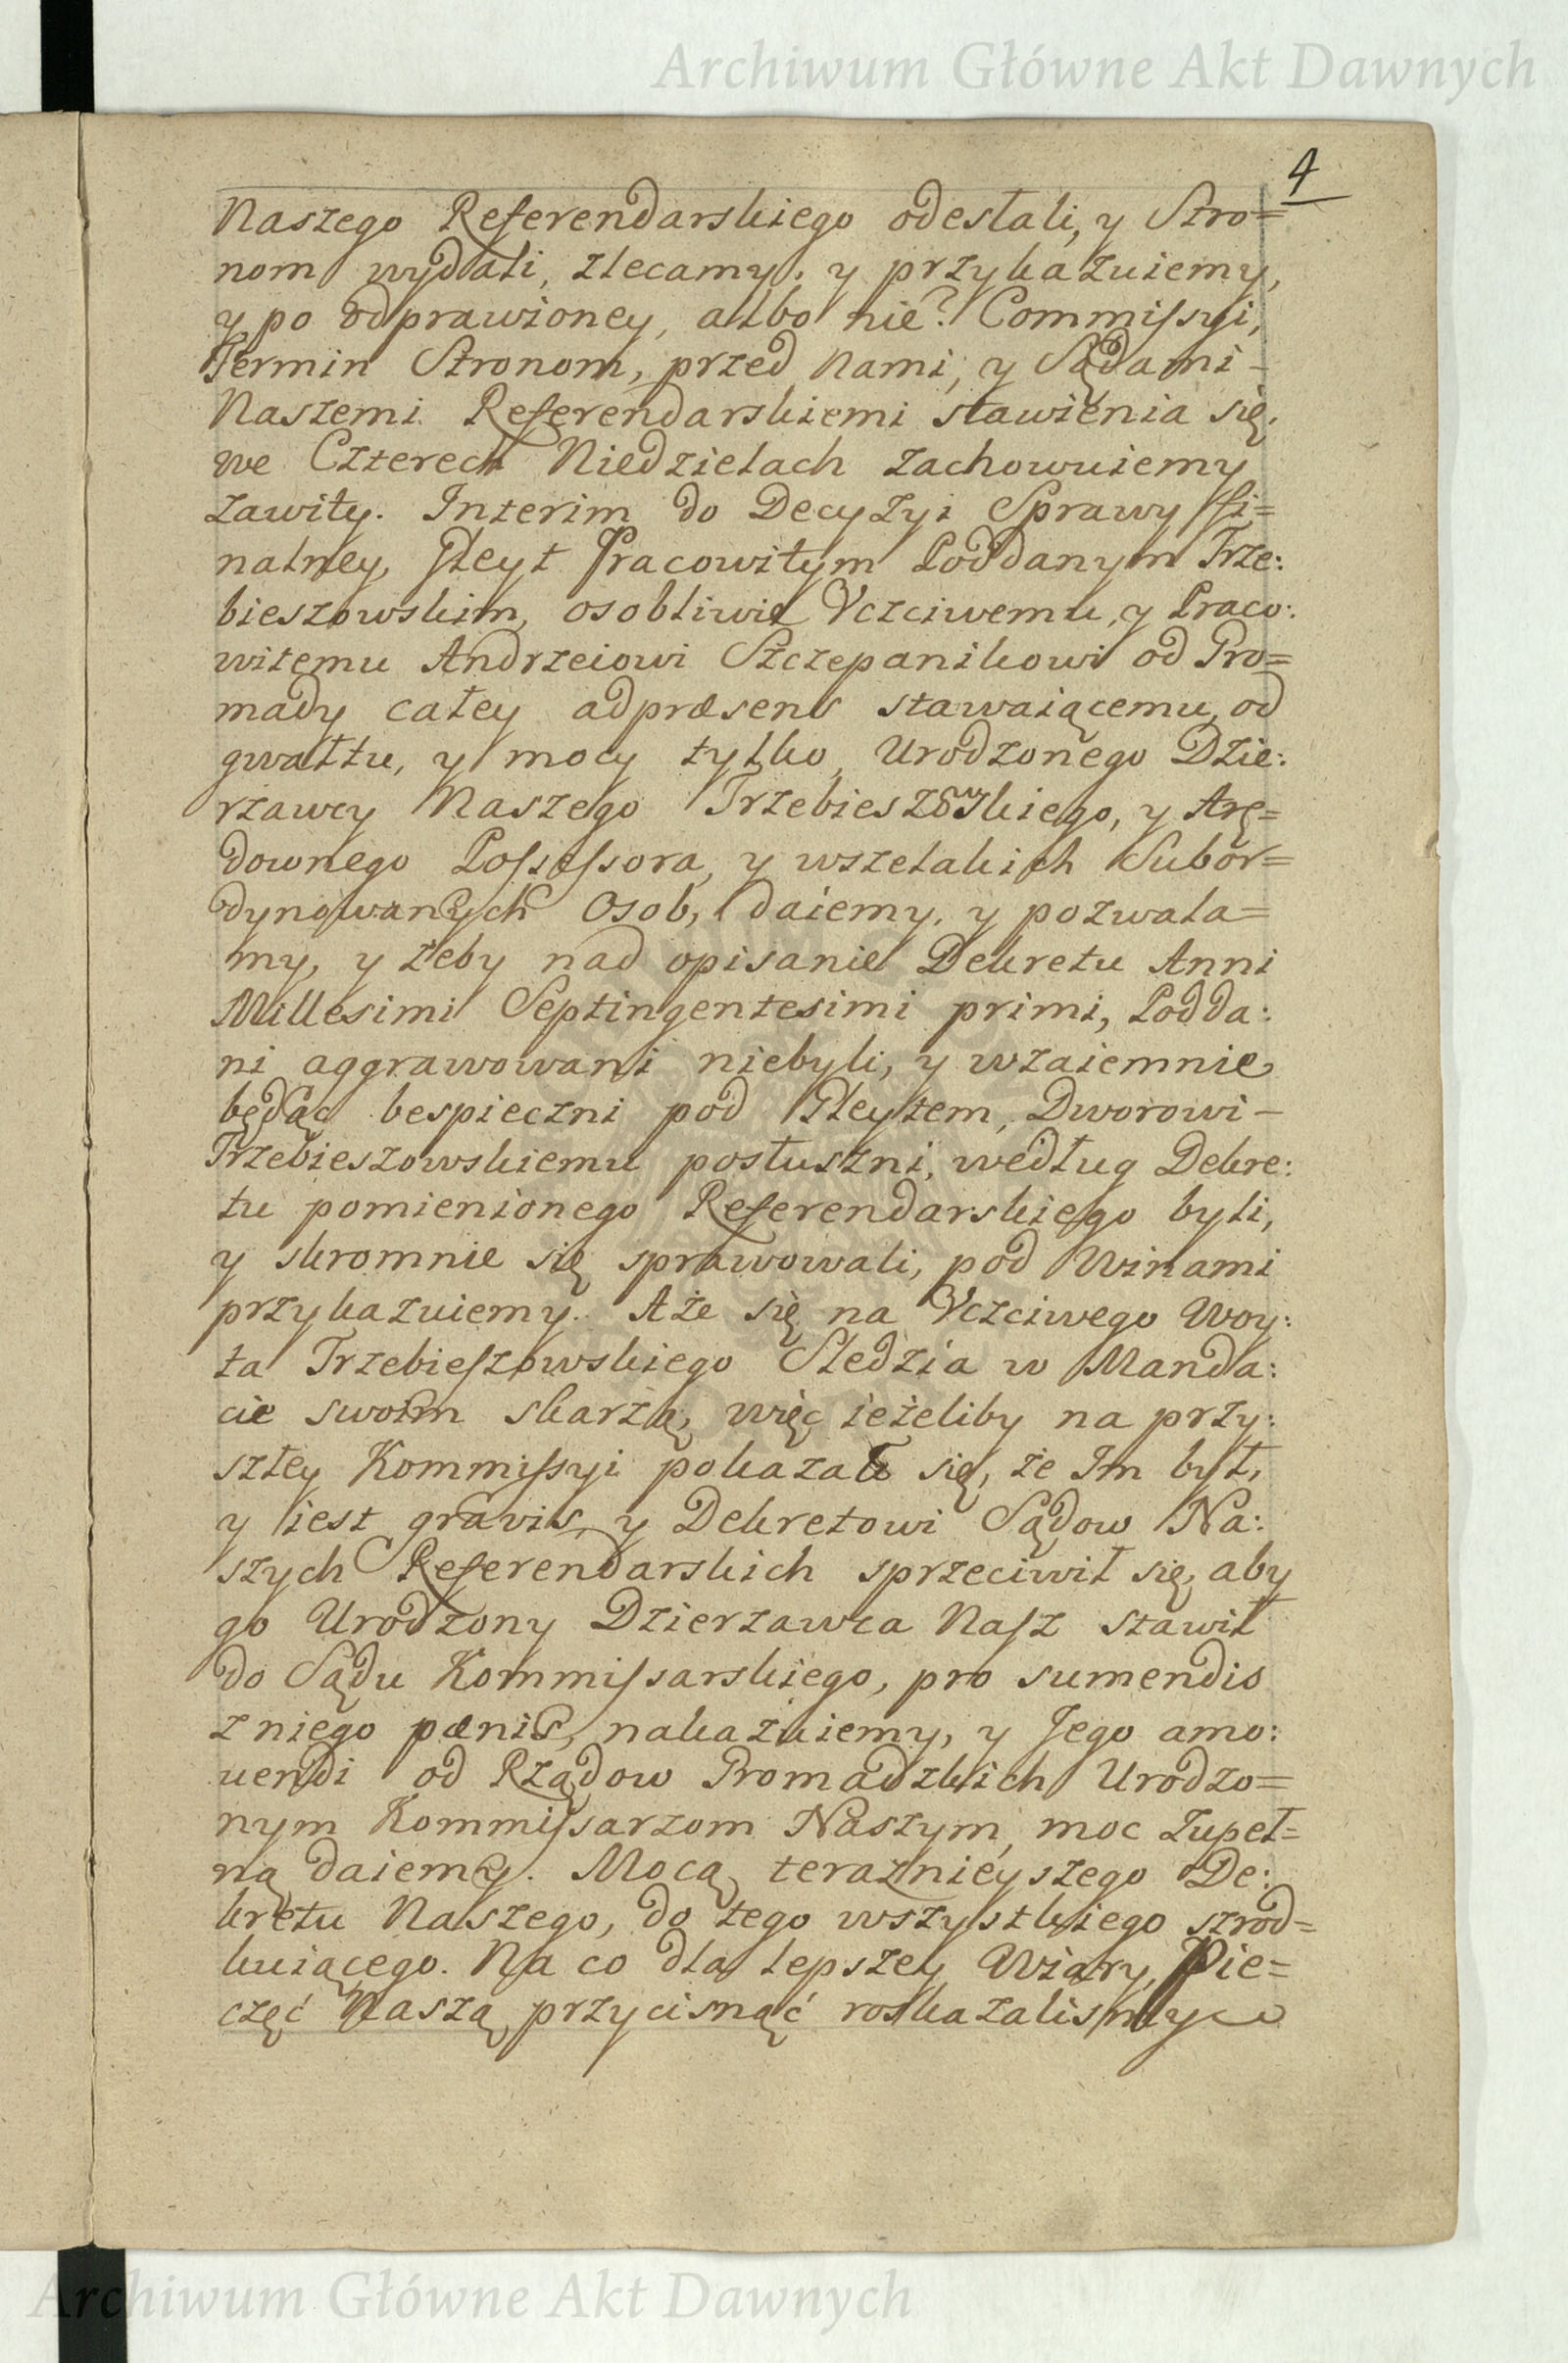 Archiwum Główne Akt Dawnych
4
Naszego Referendarskiego odesłali, y Stro=
nom wydali, zlecamy, y przykazuiemy,
y po odprawioney, albo nie? Commiſsyi,
Termin Stronom, przed Nami, y Sądami -
Naszemi Referendarskiemi stawienia się,
we Czterech Niedzielach zachowuiemy
zawity. Interim do Decyzyi Sprawy ffi=
nalney, Gleyt Pracowitym Poddanym Trze:
bieszowskim, osobliwie Vczciwemu, y Praco:
witemu Andrzeiowi Szczepanikowi od Gro=
mady całey adpræsens stawaiącemu, od
gwałtu, y mocy tylko, Urodzonego Dzie:
rzawcy Naszego Trzebieszowskiego, y Arę=
downego Poſseſsora, y wszelakich Subor=
dynowanych Osob, daiemy, y pozwala=
my, y żeby nad opisanie Dekretu Anni
Millesimi Septingentesimi primi, Podda:
ni aggrawowani niebyli, y wzaiemnie
będąc bespieczni pod Gleytem, Dworowi -
Trzebieszowskiemu posłuszni, według Dekre:
tu pomienionego Referendarskiego byli,
y skromnie się sprawowali, pod Winami
przykazuiemy. Aże się na Vczciwego Woy:
ta Trzebieſzowskiego Sledzia w Manda:
cie swoim skarżą, więc ieżeliby na przy:
szłey Kommiſsyi pokazało się, że Im był,
y iest gravis, y Dekretowi Sądow Na:
szych Referendarskich sprzeciwił się, aby
go Urodzony Dzierzawca Naſz stawił
do Sądu Kommiſsarskiego, pro sumendis
z niego pænis, nakazuiemy, y Jego amo:
uendi od Rządow Gromadzkich Urodzo=
nym Kommiſsarzom Naszym, moc zupeł=
ną daiemy. Mocą teraznieyszego De:
kretu Naszego, do tego wszystkiego szrod=
kuiącego. Na co dla lepszey Wiary, Pie=
częć Naszą przycisnąć roskazalismy
Archiwum Główne Akt Dawnych